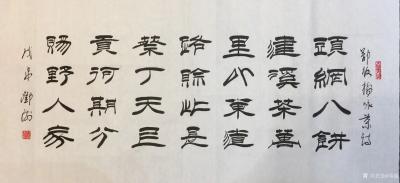 鄭板橋咏茶詩
頭綱八餅
建溪茶萬
里山東道
路賒此是
蔡丁天上
貢何期分
賜野人家